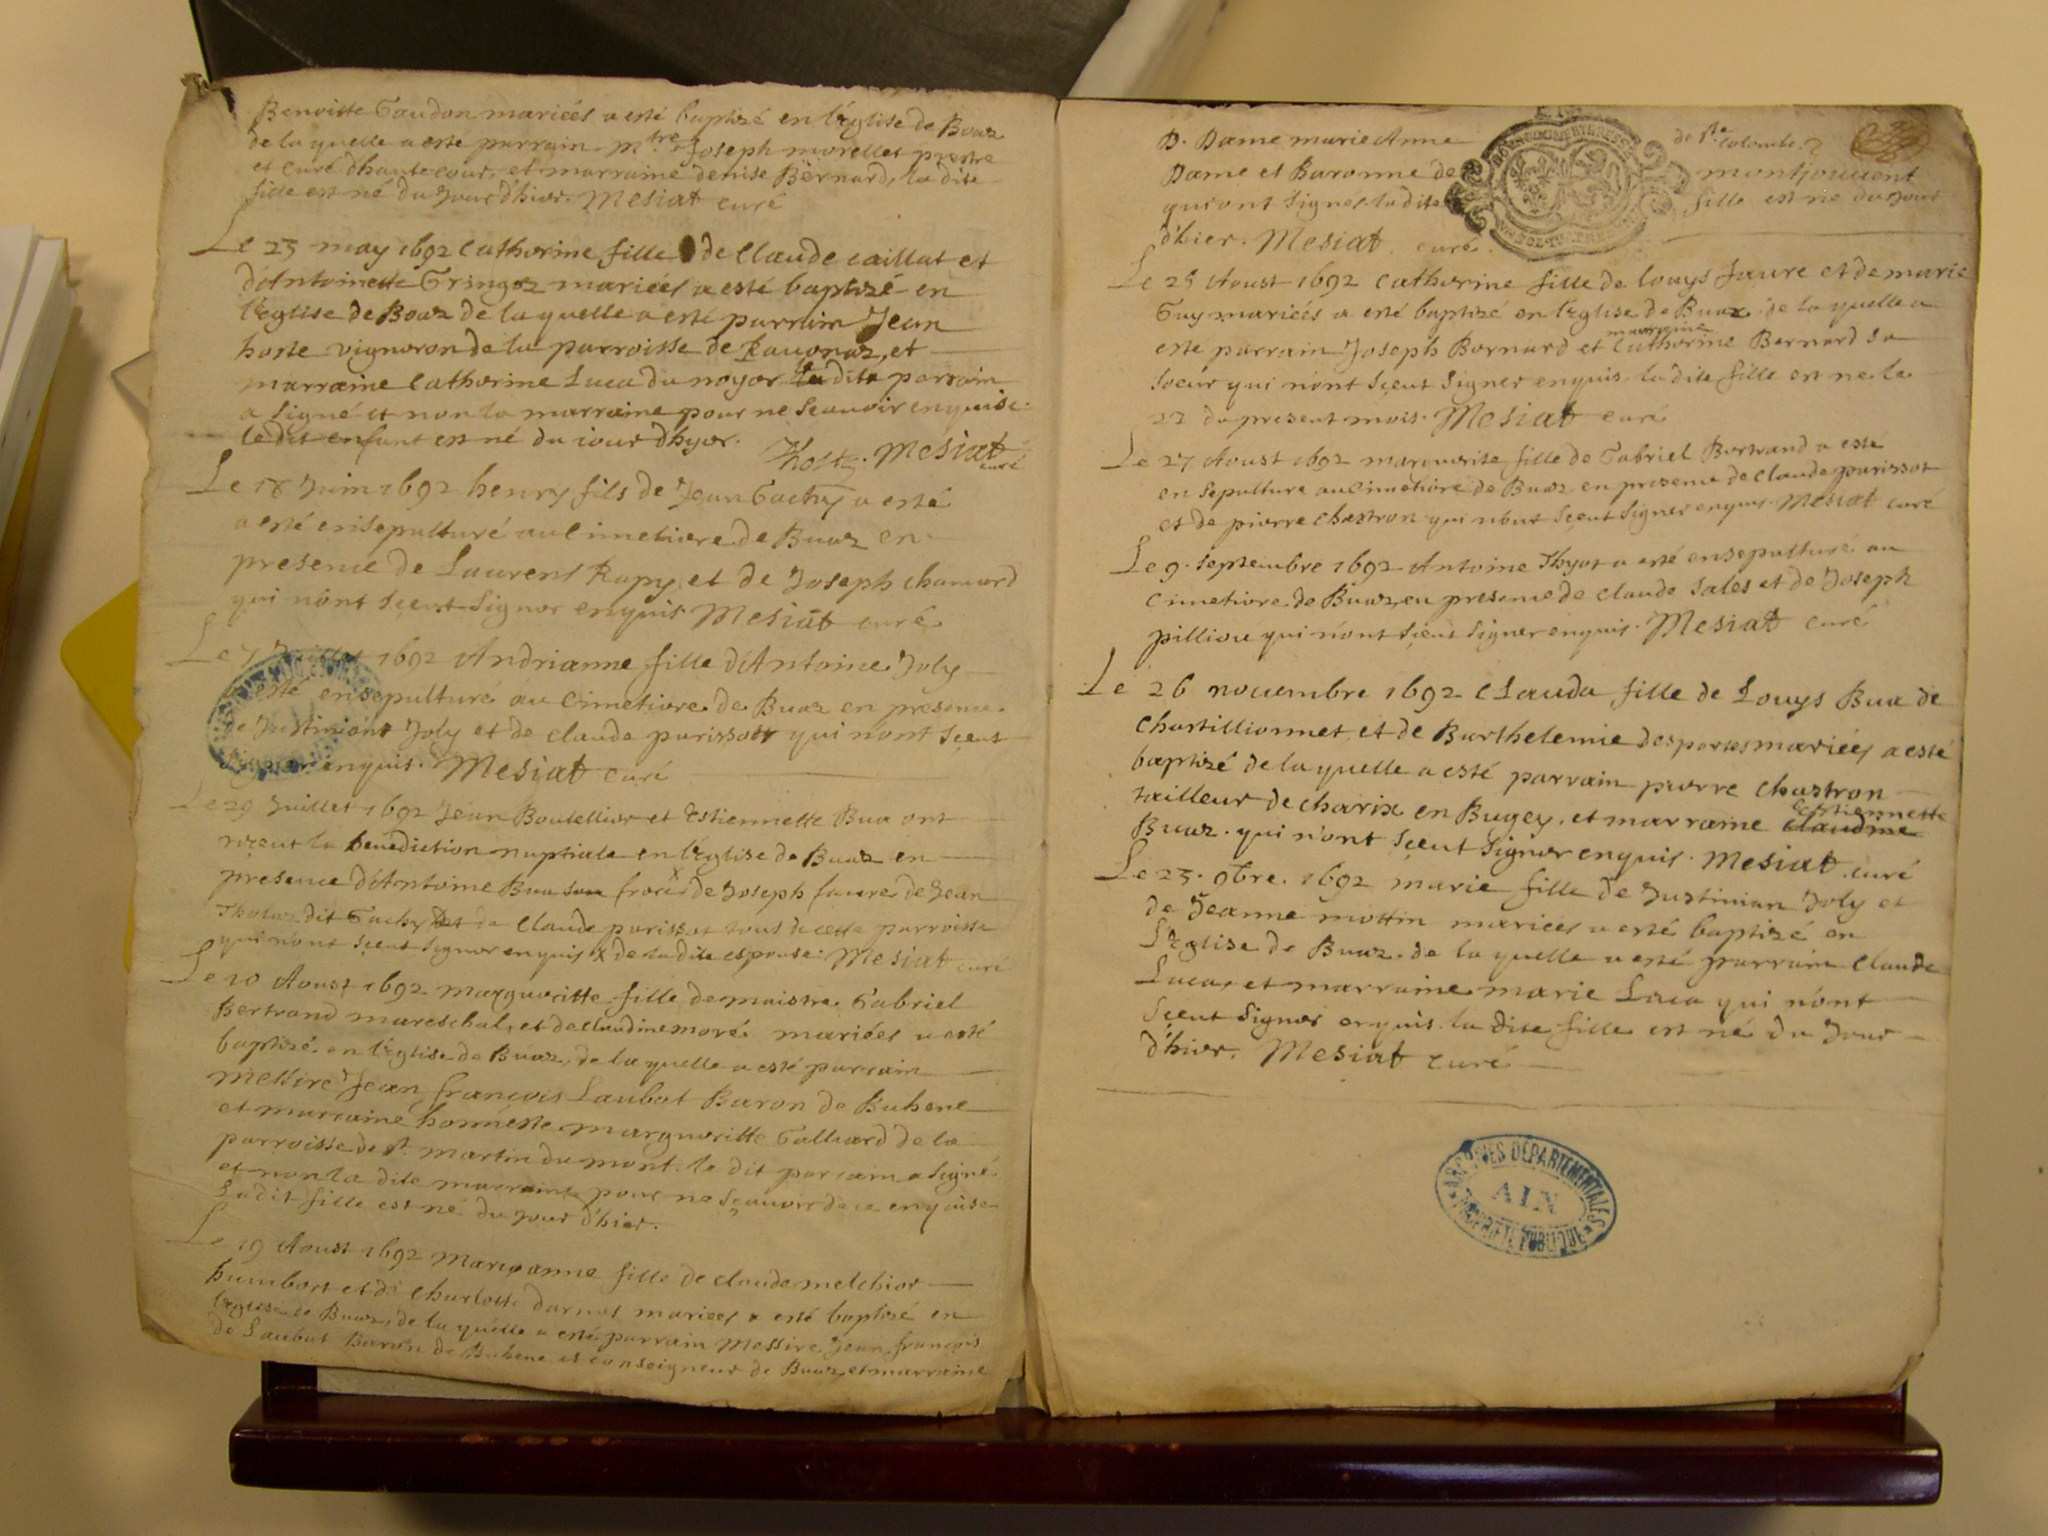 Benoitte Gaudon mariées a esté baptizé en l'Eglise de Bouaz
de la quelle a esté parrain mtre Joseph morellet prestre
et curé d'hautecour, et marraine denise Bernard, la dite
fille est né du jour d'hier. Mesiat curé
Le 23 may 1692 Catherine fille de Claude caillat et
d'Antoinette mariées a esté baptizé en
l'Eglise de Bouaz de la quelle a esté parrain Jean
hoste vigneron de la parroisse de et
marraine Catherine Luca du noyer la dite parrain
a signé et non la marraine pour ne scauoir enquise
le dit enfant est né du iour d'hyer.
Mesiat
curé
Le 18 Juin 1692 henry fils de Jean Gachy a esté
a esté ensepulturé au Cimetiere de Buaz en
presence de Laurent Rapy et de Joseph chanard
qui n'ont sçeut signer enquis Mesiat curé
Le 7 1692 Andrianne fille d'Antoine Joly
a esté ensepulturé au Cimetiere de Buaz en presence
de Justinient Joly et de claude parissott qui n'ont sçeut
signer enquis. Mesiat curé
Le 29 Juillet 1692 Jean Boutellier et Estiennette Bua ont
reçeut la benediction nuptiale en l'Eglise de Buaz en
presence d'Antoine Bua frere x de Joseph faure de Jean
dit Gachy et de Claude parissot tous de cette parroisse
qui n'ont sçeut signer enquis x de la dite espouse. Mesiat curé
Le 10 Aoust 1692 margueritte fille de maistre Gabriel
Bertrand mareschal, et de claudine moré mariées a esté
baptizé en l'Eglise de Buaz, de la quelle a esté parrain
Messire Jean françois Laubat Baron de Buhene
et marraine honneste marguerite Galliard de la
parroisse de st. martin du mont. le dit parrain a signé
et non la dite marraine pour ne sçauoir de ce enquise
Ladit fille est né du jour d'hier.
Le 19 Aoust 1692 Marieanne fille de claude melchior
humbert et de Charlotte mariées a esté baptizé en
l'Eglise de Buaz, de la quelle a esté parrain Messire Jean françois
de Laubat Baron de Buhene et conseigneur de Buaz, et marraine
D. Dame marie Anne de Ste. Colombe
Dame et Baronne de montjouuent
qui ont signés la dite fille est né du jour
d'hier. Mesiat curé
Le 25 Aoust 1692 Catherine fille de Louys faure et de marie
Guy mariées a esté baptizé en l'Eglise de Buaz de la quelle a
esté parrain Joseph Bernard et marraine Catherine Bernard sa
soeur qui n'ont sçeut signer enquis la dite fille est ne le
22 du present mois. Mesiat curé
Le 27 Aoust 1692 marguerite fille de Gabriel Bertrand a esté
ensepulture au Cimetiere de Buaz en presence de Claude parissot
et de pierre Chastron qui n'ont sçeut signer enquis. Mesiat curé
Le 9. septembre 1692 Antoine Thyot a esté ensepulturé au
Cimetiere de Buaz, en presence de claude Sales et de Joseph
pilliou qui n'ont sçeut signer enquis. Mesiat curé
Le 26 nouembre 1692 Clauda fille de Louys Bua de
Chastillionnet et de Barthelemie desportes mariées a esté
baptizé de la quelle a esté parrain pierre Chastron
tailleur de charix en Bugey, et marraine claudine Estiennette
Buaz. qui n'ont sçeut signer enquis. Mesiat curé
Le 23. 9bre. 1692 marie fille de Justinian Joly et
de Jeanne mottin mariées a esté baptizé en
L'Eglise de Buaz. de la quelle a esté parrain Claude
Luca, et marraine marie Luca qui n'ont
sçeut signer enquis la dite fille est né du Jour
d'hier, Mesiat curé
ARCHIVES DÉPARTEMENTALES
AIN
PROPRIÉTÉ PUBLIQUE